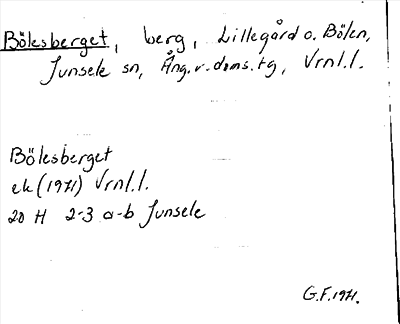 Bölesberget, berg, Lillegård o. Bölen,
Junsele sn, Ång.v.doms.tg, Vrnl.l.
Bölesberget
ek (1971) Vrnl.l.
20 H 2-3 a-b Junsele
G.F.1971.